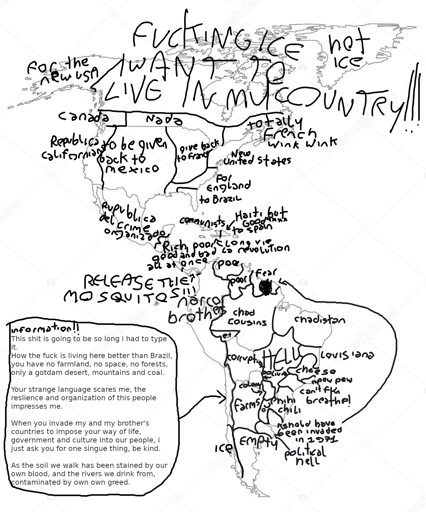 FUCKING ICE
not ICE
I WANT TO
LIVE IN MY COUNTRY!!!
For the
new USA
Canada
Nada
totally
French
wink wink
Republica
California
to be given
back to
mexico
give back
to France
New
United States
For
England
to Brazil
Republica
del
Crime
organizado
communists
Haiti but
Good
to spain
Rich poor
good and bad
all at once
Long vie
la revolution
RELEASE THE
MOSQUITOS!!!
poor
poor
fear
narco
brothers
chad
cousins
chadistan
yes
corrupts
HELL
Louisiana
cheese
pew pew
can't
breathe!
colony
farms
chili
should have
been invaded
in 1971
political
hell
Empty
ICE
information!!
This shit is going to be so long i had to type
it.
How the fuck is living here better than Brazil,
you have no farmland, no space, no forests,
only a gotdam desert, mountains and coal.
Your strange language scares me, the
reslience and organization of this people
impresses me.
When you invade my and my brother's
countries to impose your way of life,
government and culture into our people, i
just ask you for one singue thing, be kind.
As the soil we walk has been stained by our
own blood, and the rivers we drink from,
contaminated by own own greed.